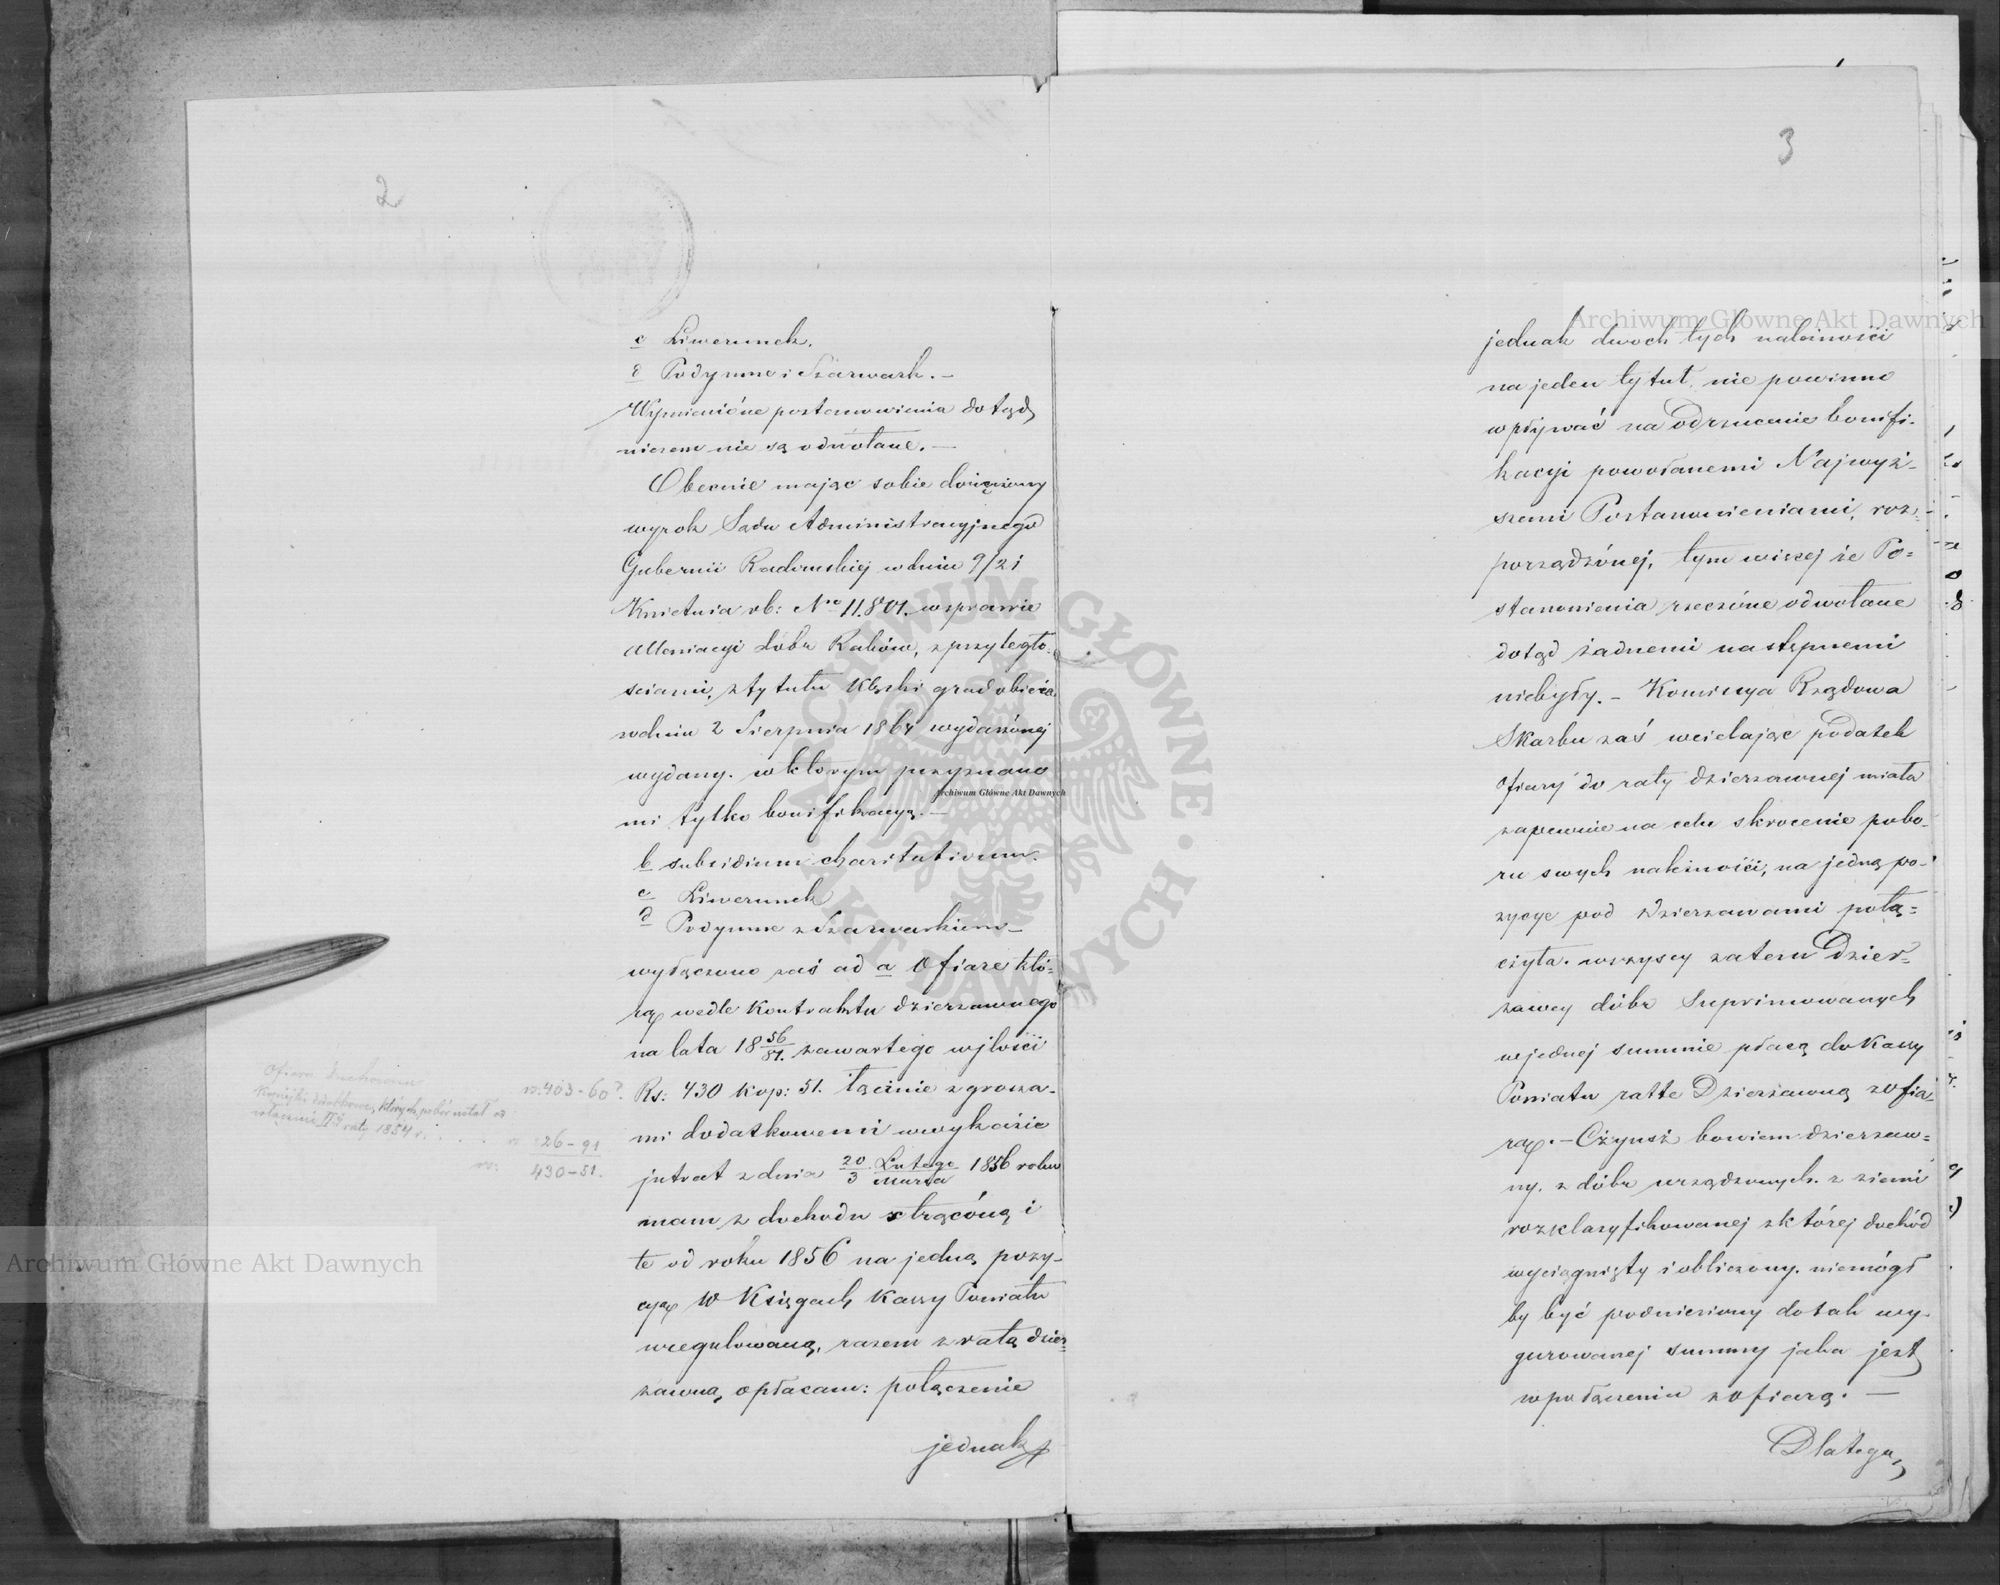 2
c Liwerunek.
d Podymne i Szarwark. –
Wymienióne postanowienia dotąd
niczem nie są odwołane. –
Obecnie mając sobie doręczony
wyrok Sądu Administracyjnego
Gubernii Radomskiej w dniu 9/21
Kwietnia rb: Nro 11.801. w sprawie
allewiacyi dóbr Raków, z przyległo-
sciami, z tytułu klęski gradobicia
w dniu 2 Sierpnia 1864 wydarzónej
wydany. w którym przyznano
mi tylko bonifikacyą. –
b subsidium charitativum.
c Liwerunek
d Podymne z Szarwarkiem –
wyłączono zaś ad a Ofiarę któ=
rą wedle Kontraktu dzierzawnego
na lata 18 56/81. zawartego w jlości
Rs: 430 kop: 51. łącznie z grosza-
mi dodatkowemi w wykazie
jntrat z dnia 20/3 Lutego/Marca 1856 roku
mam z dochodu strącóną i
te od roku 1856 na jedną pozy-
cyą w Księgach Kassy Powiatu
uregulowaną, razem z ratą dzier=
zawną opłacam: połączenie
jednak
Ofiara Duchowna
Kopiejki dodatkowe, których pobór ustał od
włącznie II raty 1854 r. . . . .
rs. 403 - 60?
rs 26 - 91
rs: 430 - 51.
3
jednak dwoch tych należności
na jeden tytuł, nie powinno
wpływać na odrzucenie bonifi-
kacyi powołanemi Najwyż-
szemi Postanowieniami, roz=
porządzónej, tym więcej że Po=
stanowienia rzeczóne odwołane
dotąd żadnemi następnemi
niebyły. – Kommissya Rządowa
Skarbu zaś wcielając podatek
Ofiary do raty dzierzawnej miała
zapewnie na celu skrocenie pobo-
ru swych należności, na jedną po-
zycye pod Dzierzawami połą=
czyła. wszyscy zatem Dzier=
zawcy dóbr Suprimowanych
w jednej summie płacą do Kassy
Powiatu ratte Dzierżawną z ofia-
rą. – Czynsz bowiem dzierzaw=
ny, z dóbr urządzonych. z ziemi
rozklasyfikowanej z której dochód
wyciągnięty i obliczony. niemógł
by być podniesiony do tak wy-
gurowanej summy jaka jest
w połączeniu z ofiarą. –
Dlatego,
Archiwum Główne Akt Dawnych
Archiwum Główne Akt Dawnych
Archiwum Główne Akt Dawnych
ARCHIWUM GŁÓWNE · AKT DAWNYCH ·